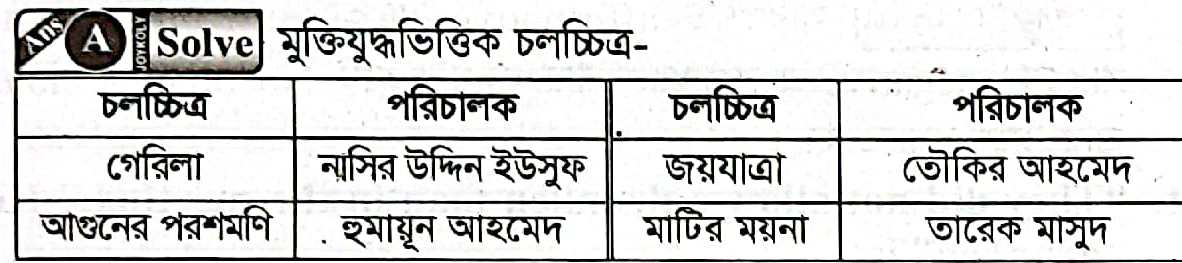 Ans A JOYKOLY Solve মুক্তিযুদ্ধভিত্তিক চলচ্চিত্র-
চলচ্চিত্র পরিচালক চলচ্চিত্র পরিচালক
গেরিলা নাসির উদ্দিন ইউসুফ জয়যাত্রা তৌকির আহমেদ
আগুনের পরশমণি হুমায়ূন আহমেদ মাটির ময়না তারেক মাসুদ